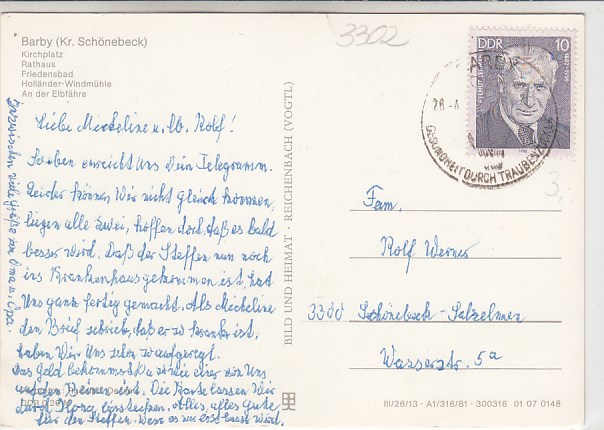 Barby (Kr. Schönebeck)
Kirchplatz
Rathaus
Friedensbad
Holländer-Windmühle
An der Elbfähre
3302
DDR 10
BARBY
28.-4.
GESUNDHEIT DURCH TRAUBENZUCKER
3,
Liebe Mickeline u. lb. Rolf!
Soeben erreicht uns Dein Telegramm.
Leider können Wir nicht gleich kommen,
liegen alle zwei, hoffen doch, daß es bald
besser wird. Daß der Steffen nun noch
ins Krankenhaus gekommen ist, hat
Uns ganz fertig gemacht. Als Mickeline
den Brief schrieb, daß er so krank ist,
haben Wir Uns sehr aufgeregt.
Das Geld bekommst Du so wie einer von Uns
auf den Beinen ist. Die Karte lassen Wir
durch einstecken. Alles, alles Gute
für den Steffen. Wenn es nur erst besser wird.
Inzwischen viele Grüße von Oma u. Opa.
BILD UND HEIMAT · REICHENBACH (VOGTL)
Fam.
Rolf Werner
3300 Schönebeck-Salzelmen
Wasserstr. 5a
III/26/13 · A1/316/81 · 300316 01 07 0148